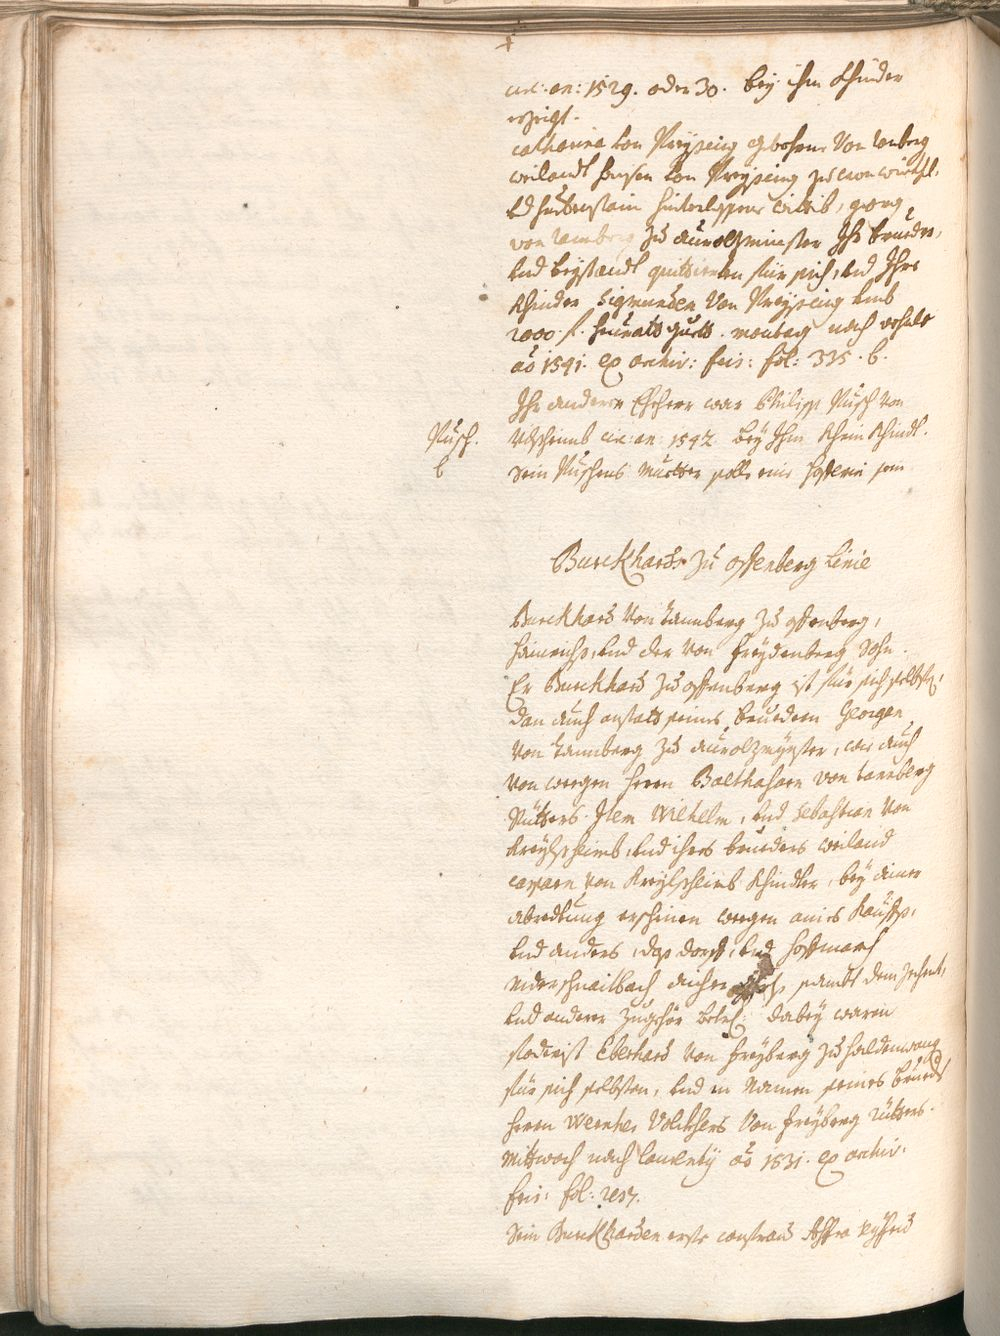 cir: an: 1529. oder 30. bey ihm Khinder
erzeigt.
Catharina von Preysing gebohrne Von Tanberg
weilandt hansen von Preysing zu Cronwünckhl,
vnd huebenstain hinterlassne Wittib, georg
von Tannberg zu Aurolzminster Ihr brueder,
vnd beystandt quittieren für sich, vnd Ihre
Khinder Sigmunden Von Preysing vmb
2000 f. heuraths guets. montag nach
aõ 1541. ex archiv: fris: fol: 335. b.
Ihr anderer Eheherr war Philipp Pusch Von
Vilshaimb cir: an: 1542 bey Ihm Khein Khindt.
Pusch.
b
Sein Puschens Muetter solle eine sein
Burckhards zu offenberg Linie
Burckhard Von Tannberg zu offenberg,
hainrichs, vnd der Von Freydenberg Sohn.
Er Burckhard zu offenberg ist für sich selbsten,
dan auch anstatt seines bruedern Georgen
Von Tannberg zu Aurolzmynster, wie auch
Von weegen herrn Balthasarn von Tannberg
Ritters. Item Wilhelm, vnd Sebastian Von
Kreylsheimb, vnd ihres brueders weiland
Casparn Von Kreylsheimb Khindter, bey einer
abredtung erschinen weegen eines Kauffs,
vnd anders, das dorf, vnd hoffmarch
Niderschnaitbach aicher sambt dem zehent,
vnd anderer Zugehör betr: dabey waren
Eberhard Von Freyberg zu haldenwang
für sich selbsten, vnd in Namen seines brueders
herrn Wernher Volckhers Von Freyberg Ritters.
Mittwoch nach Laurenty aõ 1531. ex archiv:
fris: fol: 237.
Sein Burckharden erste Affra